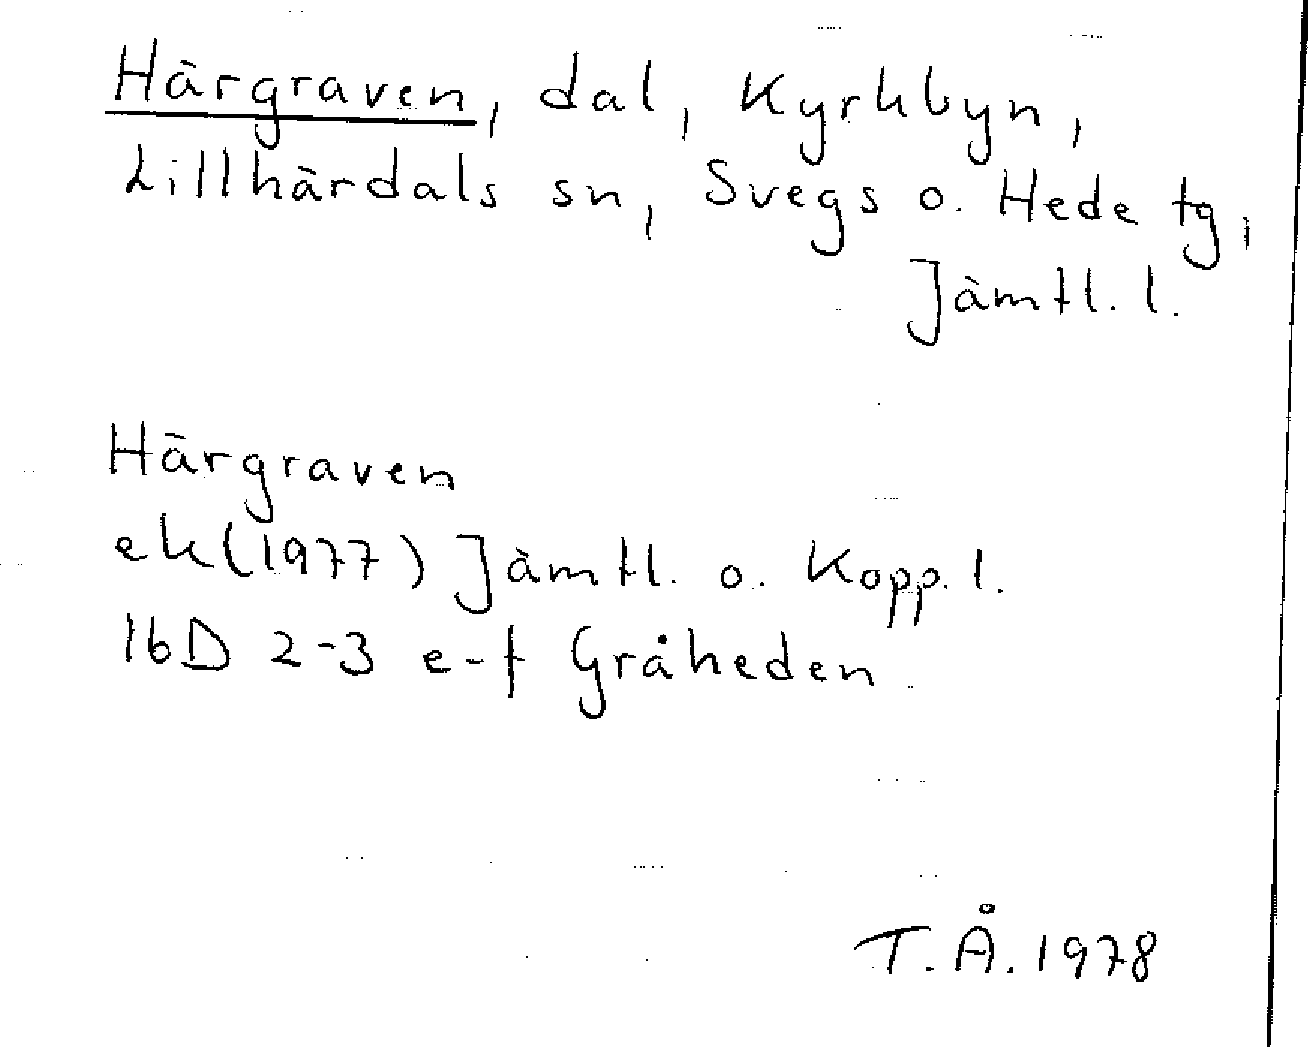 Härgraven, dal, Kyrkbyn,
Lillhärdals sn, Svegs o. Hede tg,
Jämtl. l.
Härgraven
ek (1977) Jämtl. o. Kopp. l.
16D 2-3 e-f Gråheden.
T.Å. 1978